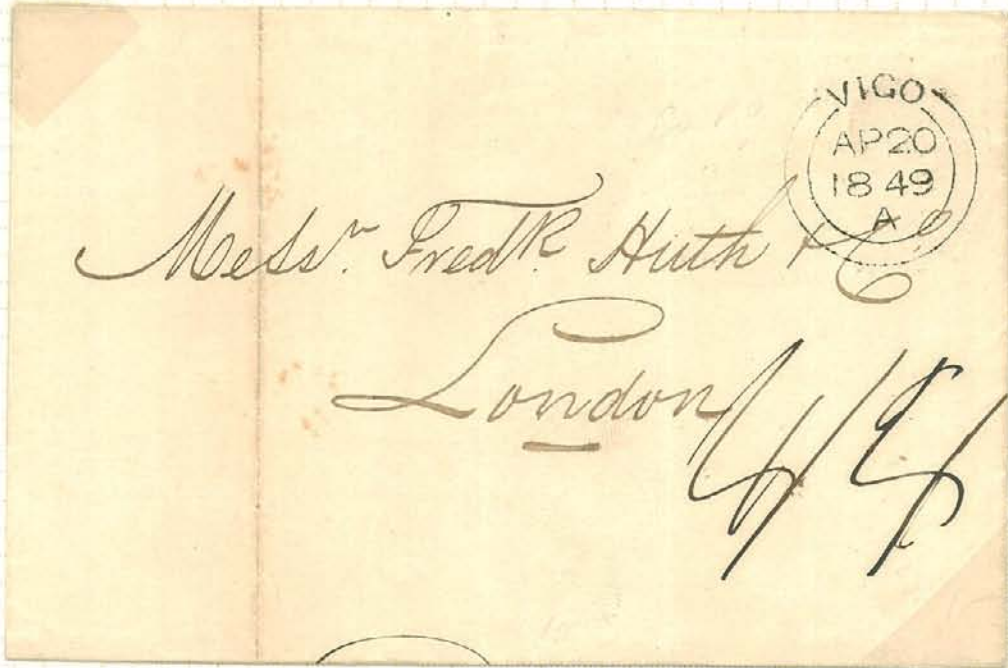 VIGO
AP 20
1849
A
Messrs. Fredk. Huth & Co
London